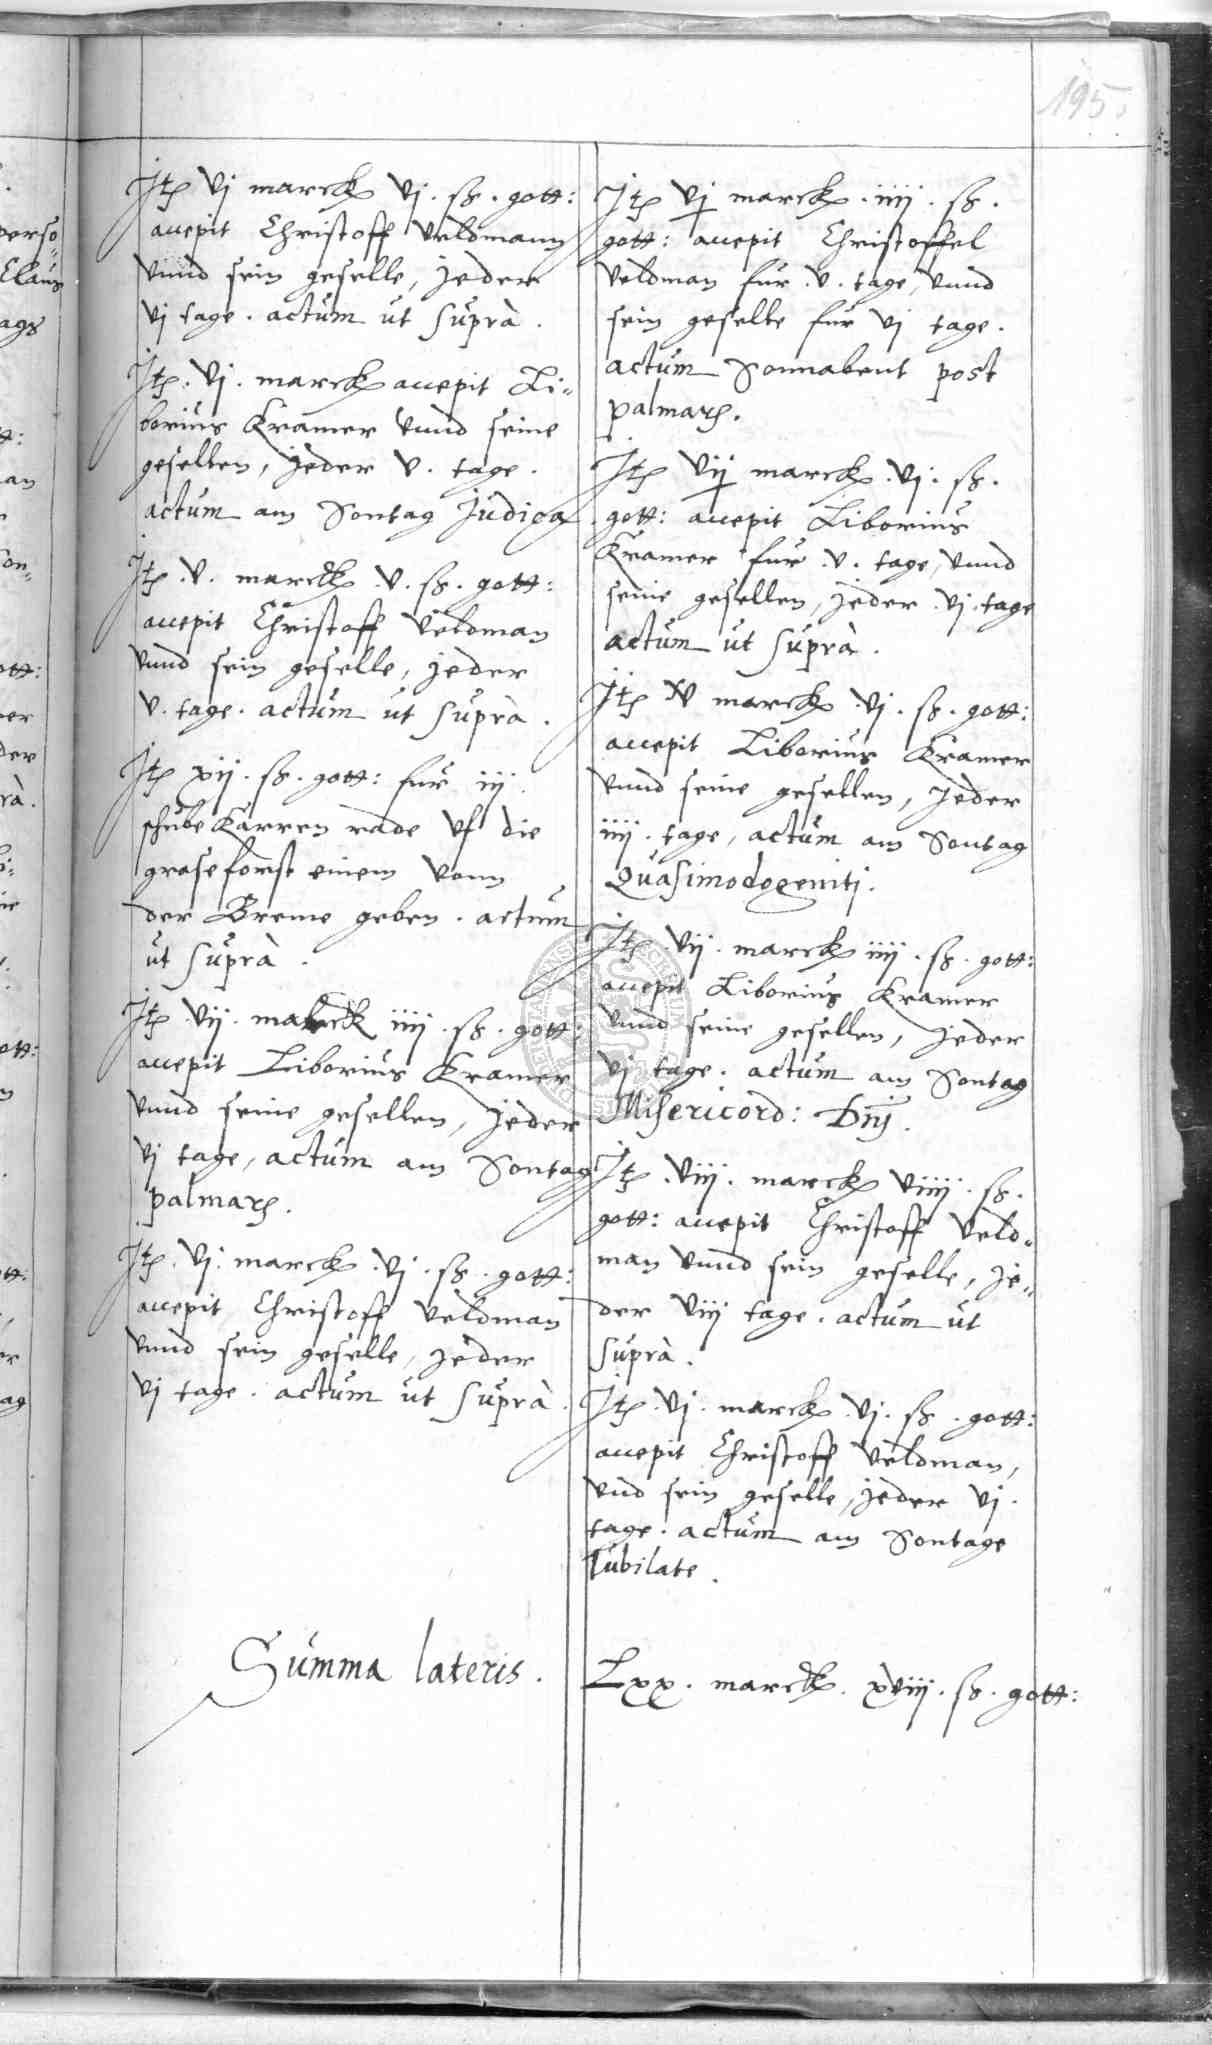 195.
Jtem vj marck vj. ß. gott:
accepit Christoff Veldmann
vnnd sein geselle, jeder
vj tage. actum ut suprà.
Jtem. vj. marck accepit Li-
borius Kramer vnnd seine
gesellen, jeder v. tage.
actum am Sontag Judica
Jtem. v. marck v. ß. gott:
accepit Christoff Veldman
vnnd sein geselle, jeder
v. tage. actum ut suprà.
Jtem xij. ß. gott: fur iij.
schube Karren rade vf die
graseforst einem vonn
der Breme geben. actum
ut suprà.
Jtem. vij. marck iiij. ß. gott:
accepit Liborius Kramer
vnnd seine gesellen, jeder
vj tage, actum am Sontag
palmarum.
Jtem. vj. marck. vj. ß. gott:
accepit Christoff Veldman
vnnd sein geselle, jeder
vj tage. actum ut suprà.
Summa lateris.
Jtem vj marck. iiij. ß.
gott: accepit Christoffel
Veldman fur. v. tage, vnnd
sein geselle fur vj tage.
actum Sonnabent post
palmarum.
Jtem vij marck. vj. ß.
gott: accepit Liborius
Kramer fur. v. tage, vnnd
seine gesellen, jeder. vj. tage
actum ut suprà.
Jtem v marck. vj. ß. gott:
accepit Liborius Kramer
vnnd seine gesellen, jeder
iiij. tage, actum am Sontag
Quasimodogeniti.
Jtem. vij. marck iiij. ß. gott:
accepit Liborius Kramer
vnnd seine gesellen, jeder
vj tage. actum am Sontag
Misericord: Dnj.
Jtem. viij. marck viiij. ß.
gott: accepit Christoff Veld-
man vnnd sein geselle, je-
der viij tage. actum ut
suprà.
Jtem. vj. marck. vj. ß. gott:
accepit Christoff Veldman,
vnd sein geselle, jeder vj.
tage. actum am Sontage
Jubilate.
Lxx. marck. xviij. ß. gott: